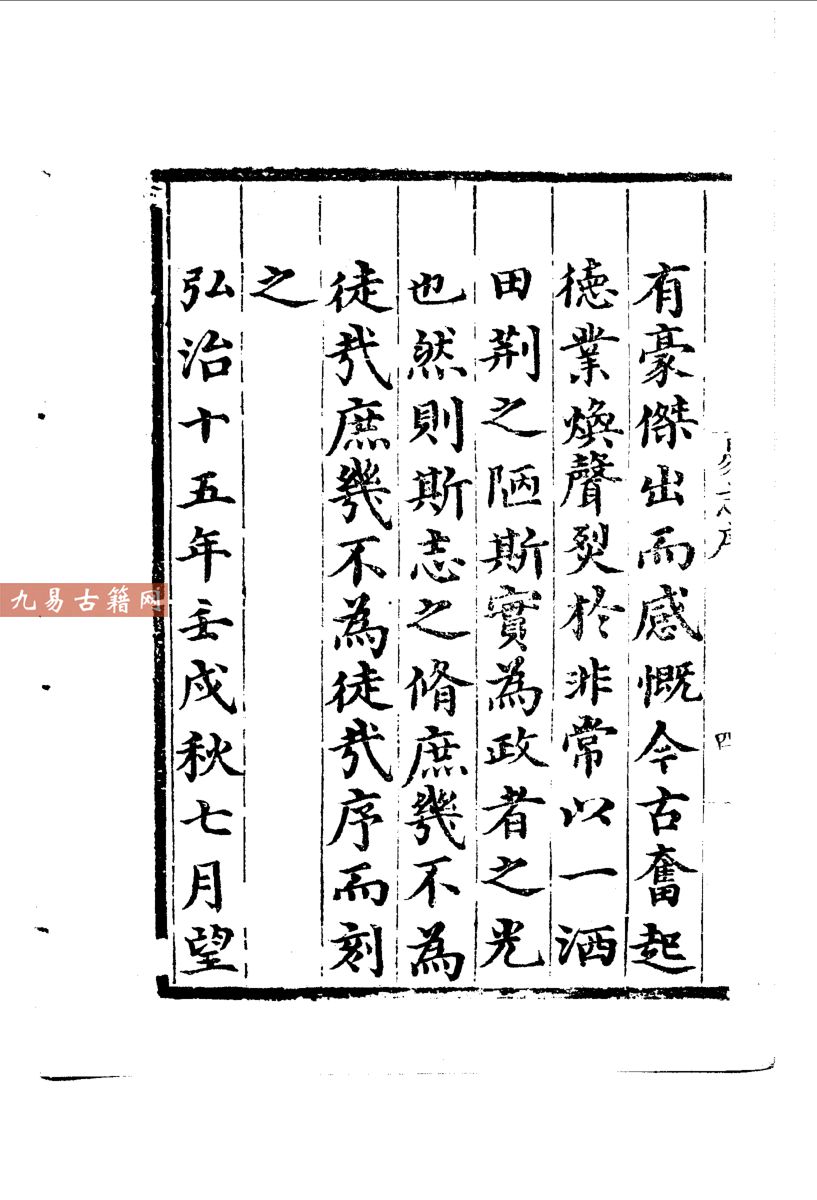 有豪傑出而感慨今古奮起
德業煥聲烈於非常以一洒
田荆之陋斯實為政者之光
也然則斯志之脩庶幾不為
徒㦲庶幾不為徒㦲序而刻
之
弘治十五年壬戌秋七月望
四
九易古籍网